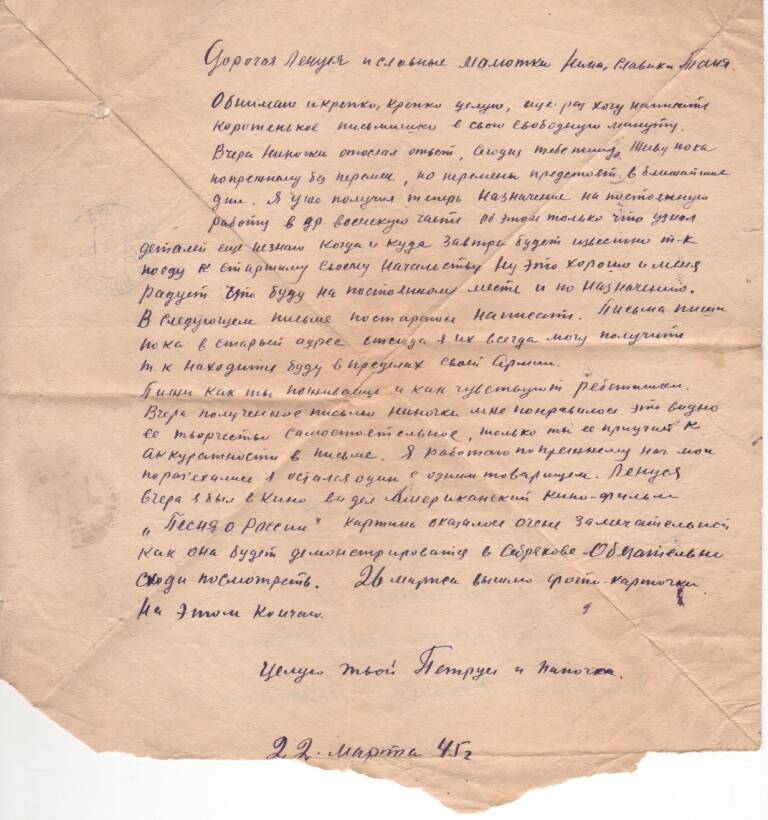 Дорогая Ленуся и славные малютки Нина, Славик и Таня.
Обнимаю и крепко, крепко целую, еще раз хочу написать
коротенькое письмишко в свою свободную минуту.
Вчера Ниночки отослал ответ, сегодня тебе пишу. Живу пока
по прежнему без перемен, но перемены предстоят в ближайшие
дни. Я уже получил теперь назначение на постоянную
работу в др воинскую часть об этом только что узнал
деталей еще незнаю когда и куда завтра будет известно т-к
поеду к старшему своему начальству ну это хорошо и меня
радует что буду на постоянном месте и по назначению.
В следующем письме постараюсь написать. Письма пиши
пока в старый адрес отсюда я их всегда могу получить
т.к находится буду в пределах своей Армии.
Пиши как ты поживаеш и как чувствуют ребетишки.
Вчера полученное письмо Ниночки мне понравилось это видно
ее творчество самостоятельное, только ты ее приучай к
аккуратности в письме. Я работаю по прежнему нач мои
поразъехались я остался один с одним товарищем. Ленуся
вчера я был в Кино видел Американский кино-фильм
„Песня о России" картина оказалось очень замечательной
как она будет демонстрироватся в Себрякове Обязательно
сходи посмотреть. 26 марта вышлю фото-карточки.
На этом кончаю.
Целую твой Петруси и папочка.
22 марта 45 г